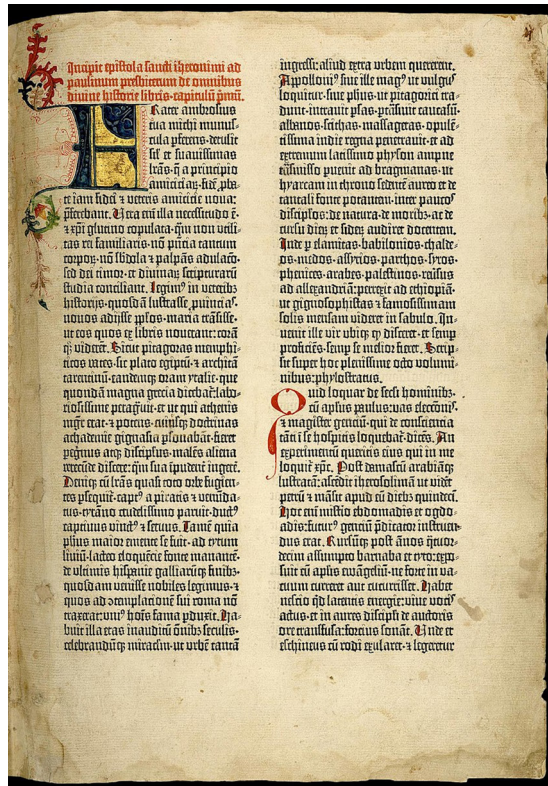 Incipit epistola sancti iheronimi ad
paulinum presbiterum de omnibus
divine historie libris·capitulū p̄mū.
Frater ambrosius
tua michi munus-
cula pferens·detulit
sil' et suavissimas
lrās·q̄ a principio
amiciciaȝ·fidē pba-
te iam fidei ⁊ veteris amicicie nova:
pferebant. Vera em̄ illa necessitudo ē·
⁊ xpi glutino copulata·qm̄ non vtili-
tas rei familiaris·nō p̄ncia tantum
corpoꝝ·nō sbdola ⁊ palpās adulacō·
sed dei timor·et divinaꝝ scripturarū
studia conciliant. Legim⁹ in veterib⁹
historijs·quosdā lustrasse puincias·
novos adijsse pplos·maria trāsisse·
ut eos quos ex libris noverant:corā
q̄⁊ vidēt. Sicut pitagoras memphi-
ticos vates·sic plato egiptū·⁊ architā
tarentinū·eandemq̄ oram ytalie·que
quondā magna grecia dicebat̄:labo-
riosissime peragavit·et ut qui athenis
mgr̄ erat·⁊ potens·cuiusq̄ doctrinas
achademie gignasia psonabāt·fieret
pegrinus atq̄ discipulus·malēs aliena
verecūde discere:qm̄ sua īpudent̄ ingerē.
Deniq̄ cū lrās quasi toto orbe fugien-
tes psequit̄·capt⁹ a piratis ⁊ venūda-
tus·tyrāno crudelissimo paruit·duct⁹
captivus vinct⁹ ⁊ servus. Tamē quia
phus maior emente se fuit·ad tytum
liviū·lacteo eloquēcie fonte manantē·
de vltimis hispanie galliarūq̄ finib⁹·
quosdam venisse nobiles legimus·⁊
quos ad ɔtemplacionē sui roma nō
traxerat·uni⁹ hoīs fama pduxit. Ha-
buit illa etas inauditū oīb⁹ seculis·
celebrandūq̄ miraclm̄·ut vrbē tantā
ingressi:aliud extra vrbem quererent.
Appolloni⁹ sive ille mag⁹ ut vulgus
loquitur·sive phus·ut pitagorici tra-
dunt·intravit psas·ptn̄sivit caucasū·
albanos·scithas·massagetas·opulē-
tissima indie regna penetravit·et ad
extremum latissimo physon ampne
trāsmisso puenit ad bragmanas·ut
hyarcam in throno sedentē aureo et de
tantali fonte potantem·inter paucos
discipulos·de natura·de moribȝ·ac de
cursu dieȝ et siderȝ audiret docentem.
Inde p elamitas·babilonios·chalde-
os·medos·assyrios·parthos·syros·
phenices·arabes·palestinos·reversus
ad allexandriā:perrexit ad ethiopiā·
ut gignosophistas ⁊ famosissimam
solis mensam videret in sabulo. In-
venit ille vir ubiq̄ qḍ disceret·et semp
proficiēs·semp se melior fieret. Scrip-
sit super hoc plenissime octo volumi-
nibus:phylostratus.
Quid loquar de secli hominibȝ·
cū apłus paulus:vas elecconīs·
⁊ magister genciū·qui de consciencia
tāti ī se hospitis loquebat̄·dicēs. An
experimentū queritis eius qui in me
loquit̄ xpc. Post damascū arabiāq̄
lustratā:ascēdit iherosolimā ut vidēt
petrū ⁊ māsit apud eū diebȝ quindecī.
Hoc em̄ misterio ebdomadis et ogdo-
adis:futur⁹ genciū p̄dicator instruen-
dus erat. Rursūq̄ post ānos q̄tuor-
decim assumpto barnaba et tyto:expo-
suit cū apłis ewāgeliū·ne forte in va-
cuum curreret aut cucurrisset. Habet
nescio qḍ latentis energie:vive vocis
actus·et in aures discipłi de auctoris
ore transfusa:forcius sonāt. Unde et
eschineus cū rodi exularet·⁊ legeretur